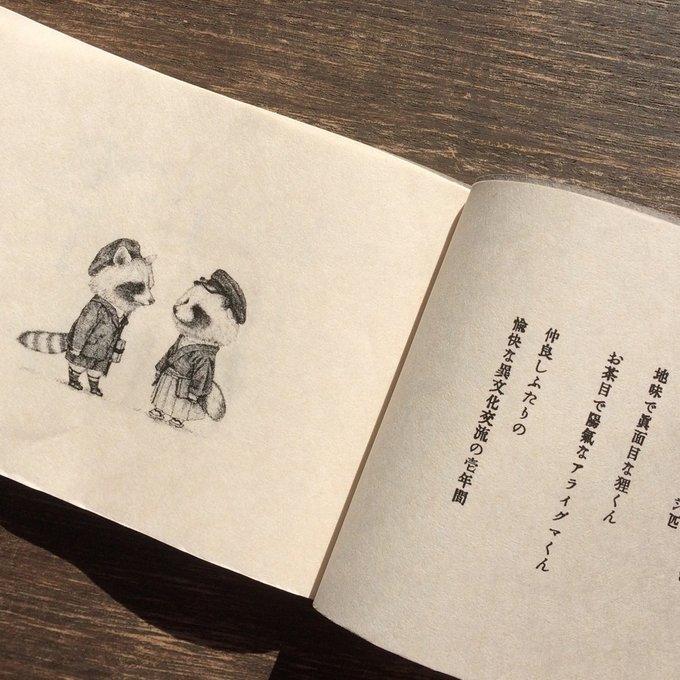 地味で眞面目な狸くん
お茶目で陽氣なアライグマくん
仲良しふたりの
愉快な異文化交流の壱年間